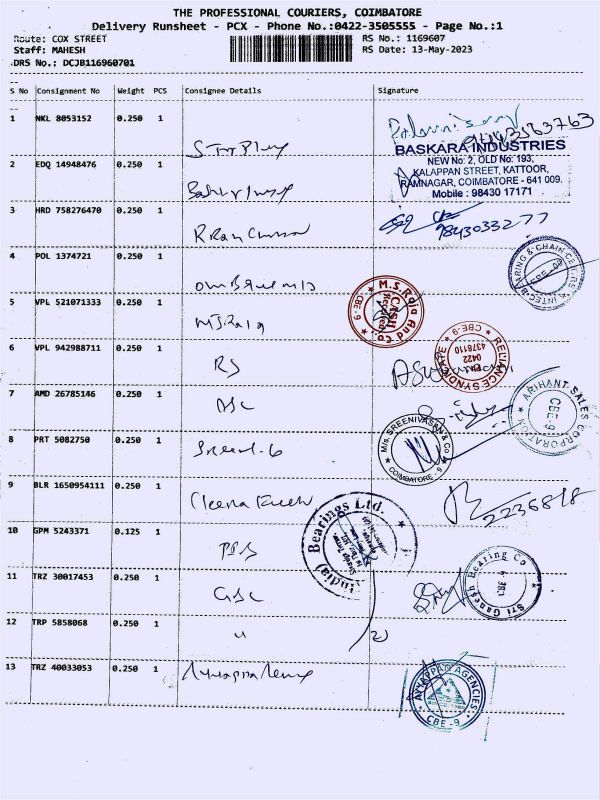 THE PROFESSIONAL COURIERS, COIMBATORE
Delivery Runsheet - PCX - Phone No.:0422-3505555 - Page No.:1
Route: COX STREET
RS No.: 1169607
Staff: MAHESH
RS Date: 13-May-2023
DRS No.: DCJB116960701
S No Consignment No Weight PCS Consignee Details Signature
1 NKL 8053152 0.250 1
BASKARA INDUSTRIES
NEW No: 2, OLD No: 193,
KALAPPAN STREET, KATTOOR,
RAMNAGAR, COIMBATORE - 641 009.
Mobile : 98430 17171
2 EDQ 14948476 0.250 1
3 HRD 758276470 0.250 1
9843033277
4 POL 1374721 0.250 1
INTEC BEARING & CHAIN CENTRE
CBE-09
5 VPL 521071333 0.250 1
M.S. Raja And Co.
CASH
Received
CBE-9
6 VPL 942988711 0.250 1 RS
RELIANCE SYNDICATE
CBE-9
PH
0422
4378110
7 AMD 26785146 0.250 1 ASC
ARIHANT SALES CORPORATION
CBE-9
8 PRT 5082750 0.250 1
M/s. SREENIVASAN & Co
COIMBATORE - 9
9 BLR 1650954111 0.250 1
2236818
10 GPM 5243371 0.125 1
(India) Bearings Ltd.
11 TRZ 30017453 0.250 1 GBC
Sri Ganesh Bearing Co
12 TRP 5858068 0.250 1 "
13 TRZ 40033053 0.250 1
AYYAPPAN AGENCIES
CBE - 9